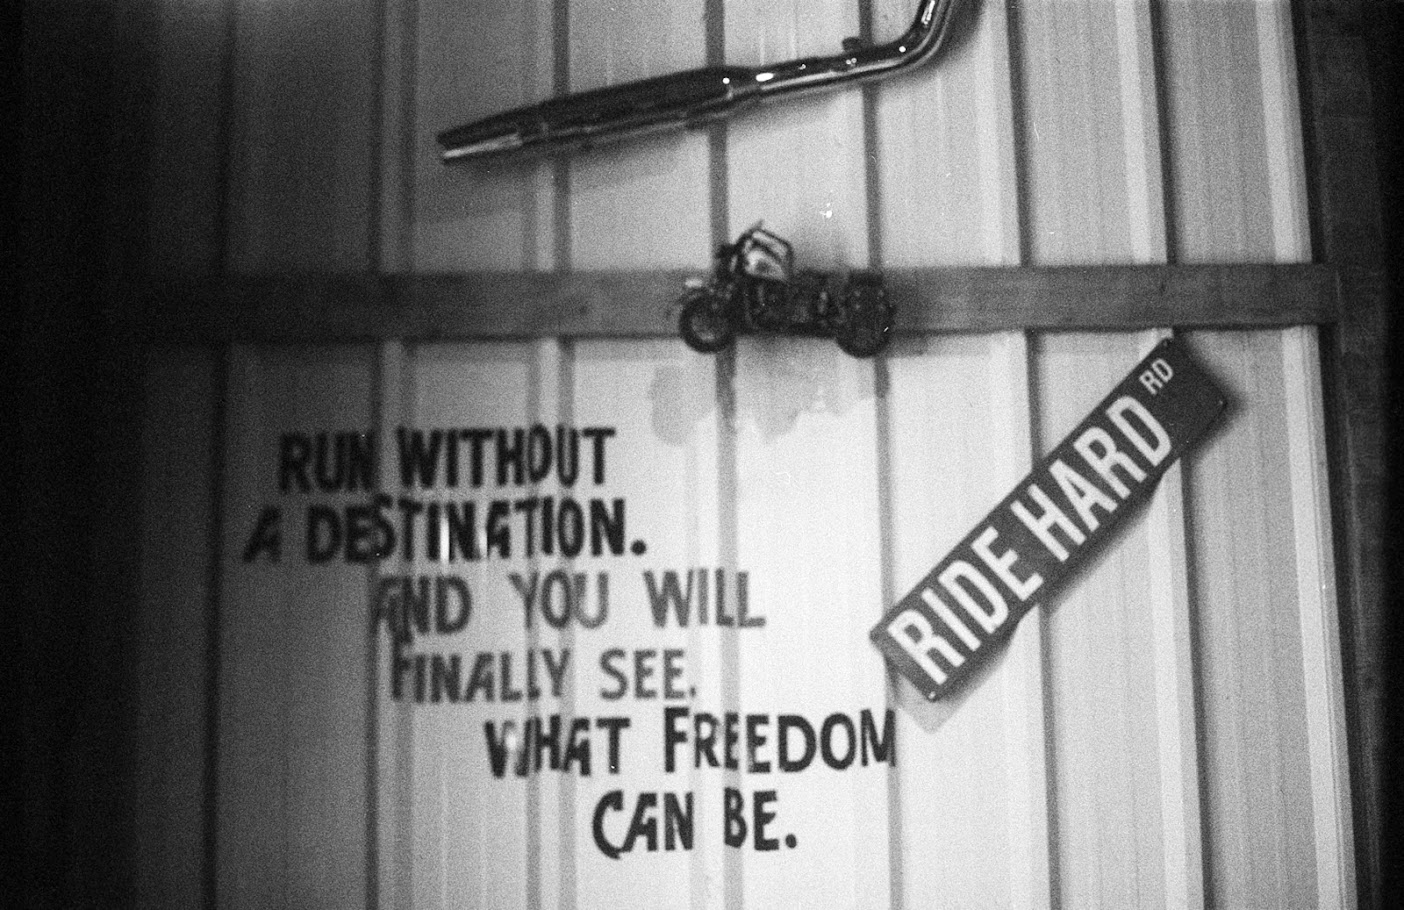 RUN WITHOUT
A DESTINATION.
AND YOU WILL
FINALLY SEE.
WHAT FREEDOM
CAN BE.
RIDE HARD RD